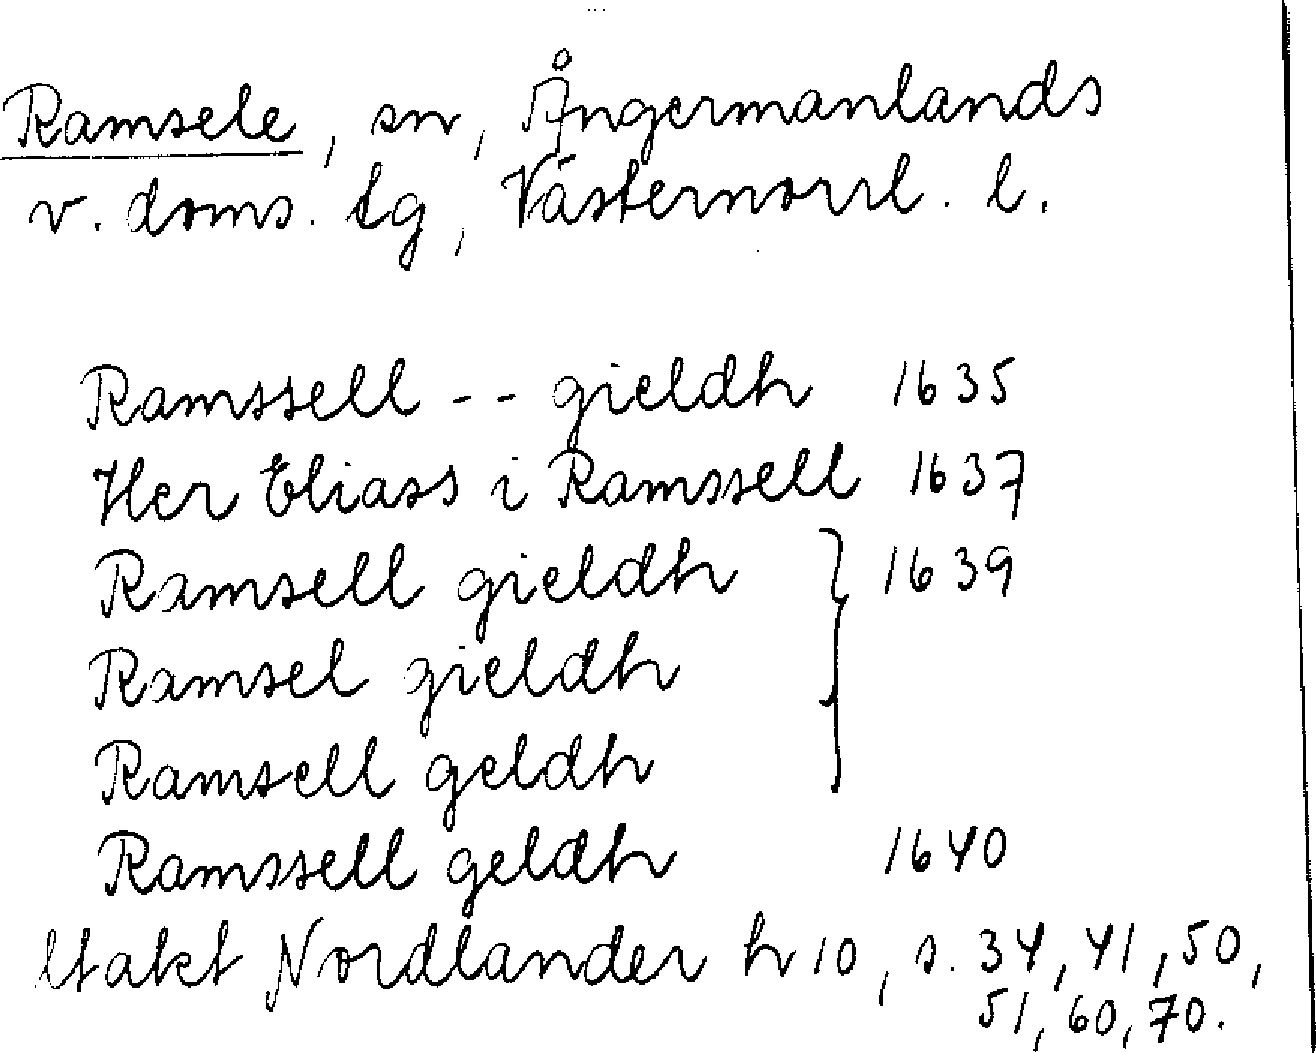 Ramsele, sn, Ångermanlands
v. doms. lg, Västernorrl. l.
Ramssell -- gieldh 1635
Her Eliass i Ramssell 1637
Ramsell gieldh } 1639
Ramsel gieldh
Ramsell geldh
Ramssell geldh 1640
Utakt Nordlander h 10, s. 34, 41, 50,
51, 60, 70.